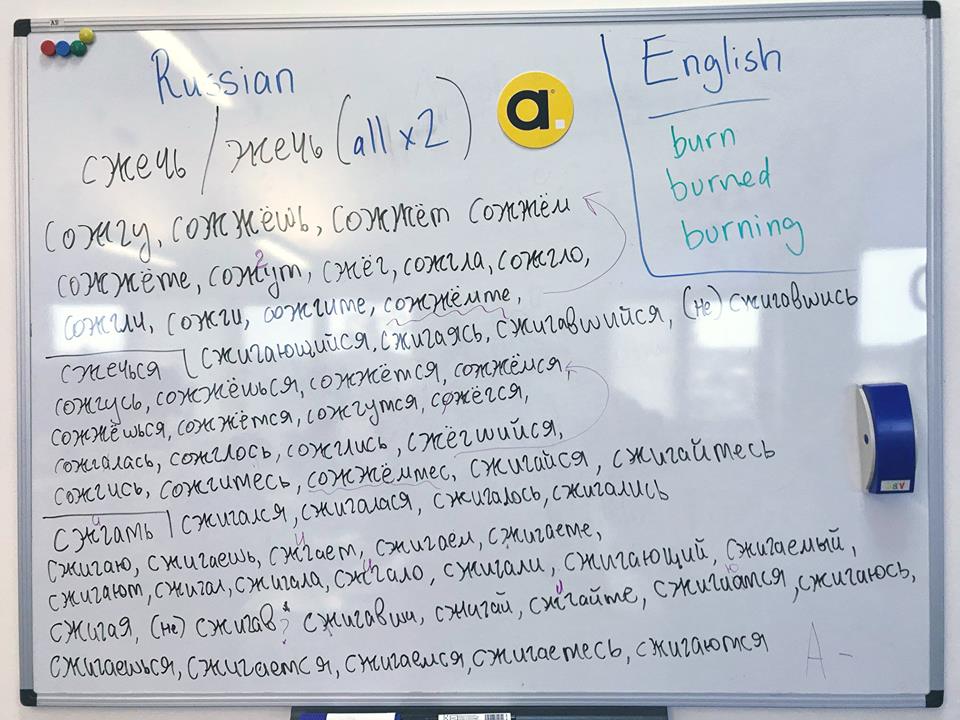 Russian
сжечь / жечь (all x 2)
сожгу, сожжёшь, сожжёт сожжём
сожжёте, сожгут, сжёг, сожгла, сожгло,
сожгли, сожги, сожгите, сожжёмте,
сжигающийся, сжигаясь, сжигавшийся, (не) сжигавшись
сжечься
сожгусь, сожжёшься, сожжётся, сожжёмся
сожжёшься, сожжётся, сожгутся, сожёгся,
сожглась, сожглось, сожглись, сжёгшийся,
сожгись, сожгитесь, сожжёмтес, сжигайся, сжигайтесь
сжигать сжигался, сжигалася, сжигалось, сжигались
сжигаю, сжигаешь, сжигает, сжигаем, сжигаете,
сжигают, сжигал, сжигала, сжигало, сжигали, сжигающий, сжигаемый,
сжигая, (не) сжигав ? сжигавши, сжигай, сжигайте, сжигаются, сжигаюсь,
сжигаешься, сжигается, сжигаемся, сжигаетесь, сжигаются
A -
a.
English
burn
burned
burning